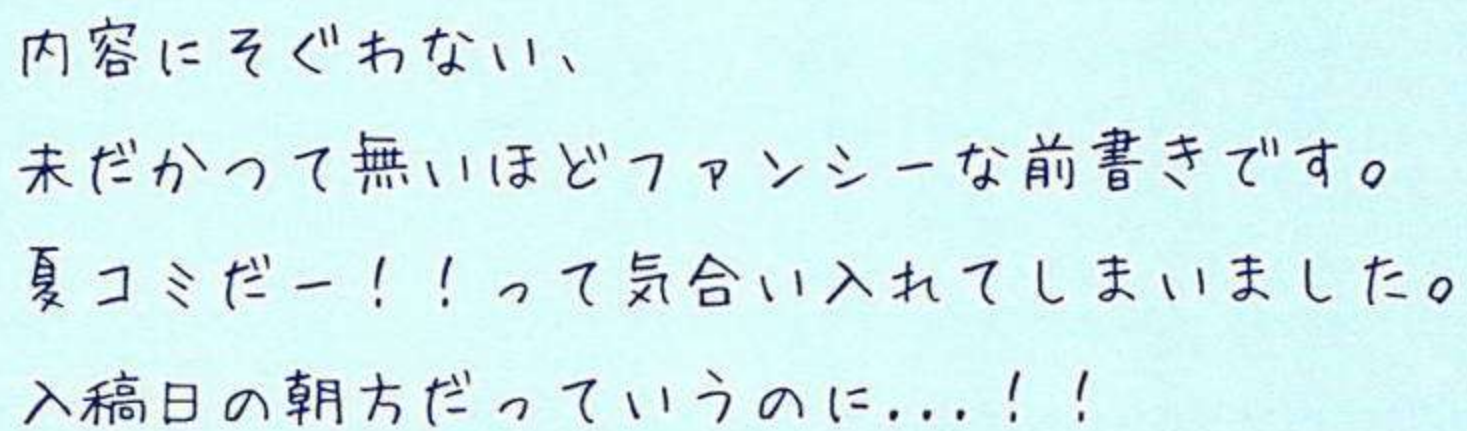 内容にそぐわない、
未だかつて無いほどファンシーな前書きです。
夏コミだー！！って気合い入れてしまいました。
入稿日の朝方だっていうのに...！！